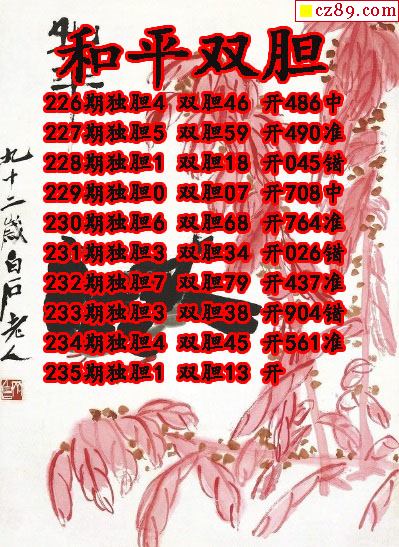 cz89.com
和平双胆
226期独胆4 双胆46 开486中
227期独胆5 双胆59 开490准
228期独胆1 双胆18 开045错
229期独胆0 双胆07 开708中
230期独胆6 双胆68 开764准
231期独胆3 双胆34 开026错
232期独胆7 双胆79 开437准
233期独胆3 双胆38 开904错
234期独胆4 双胆45 开561准
235期独胆1 双胆13 开
九十二岁白石老人